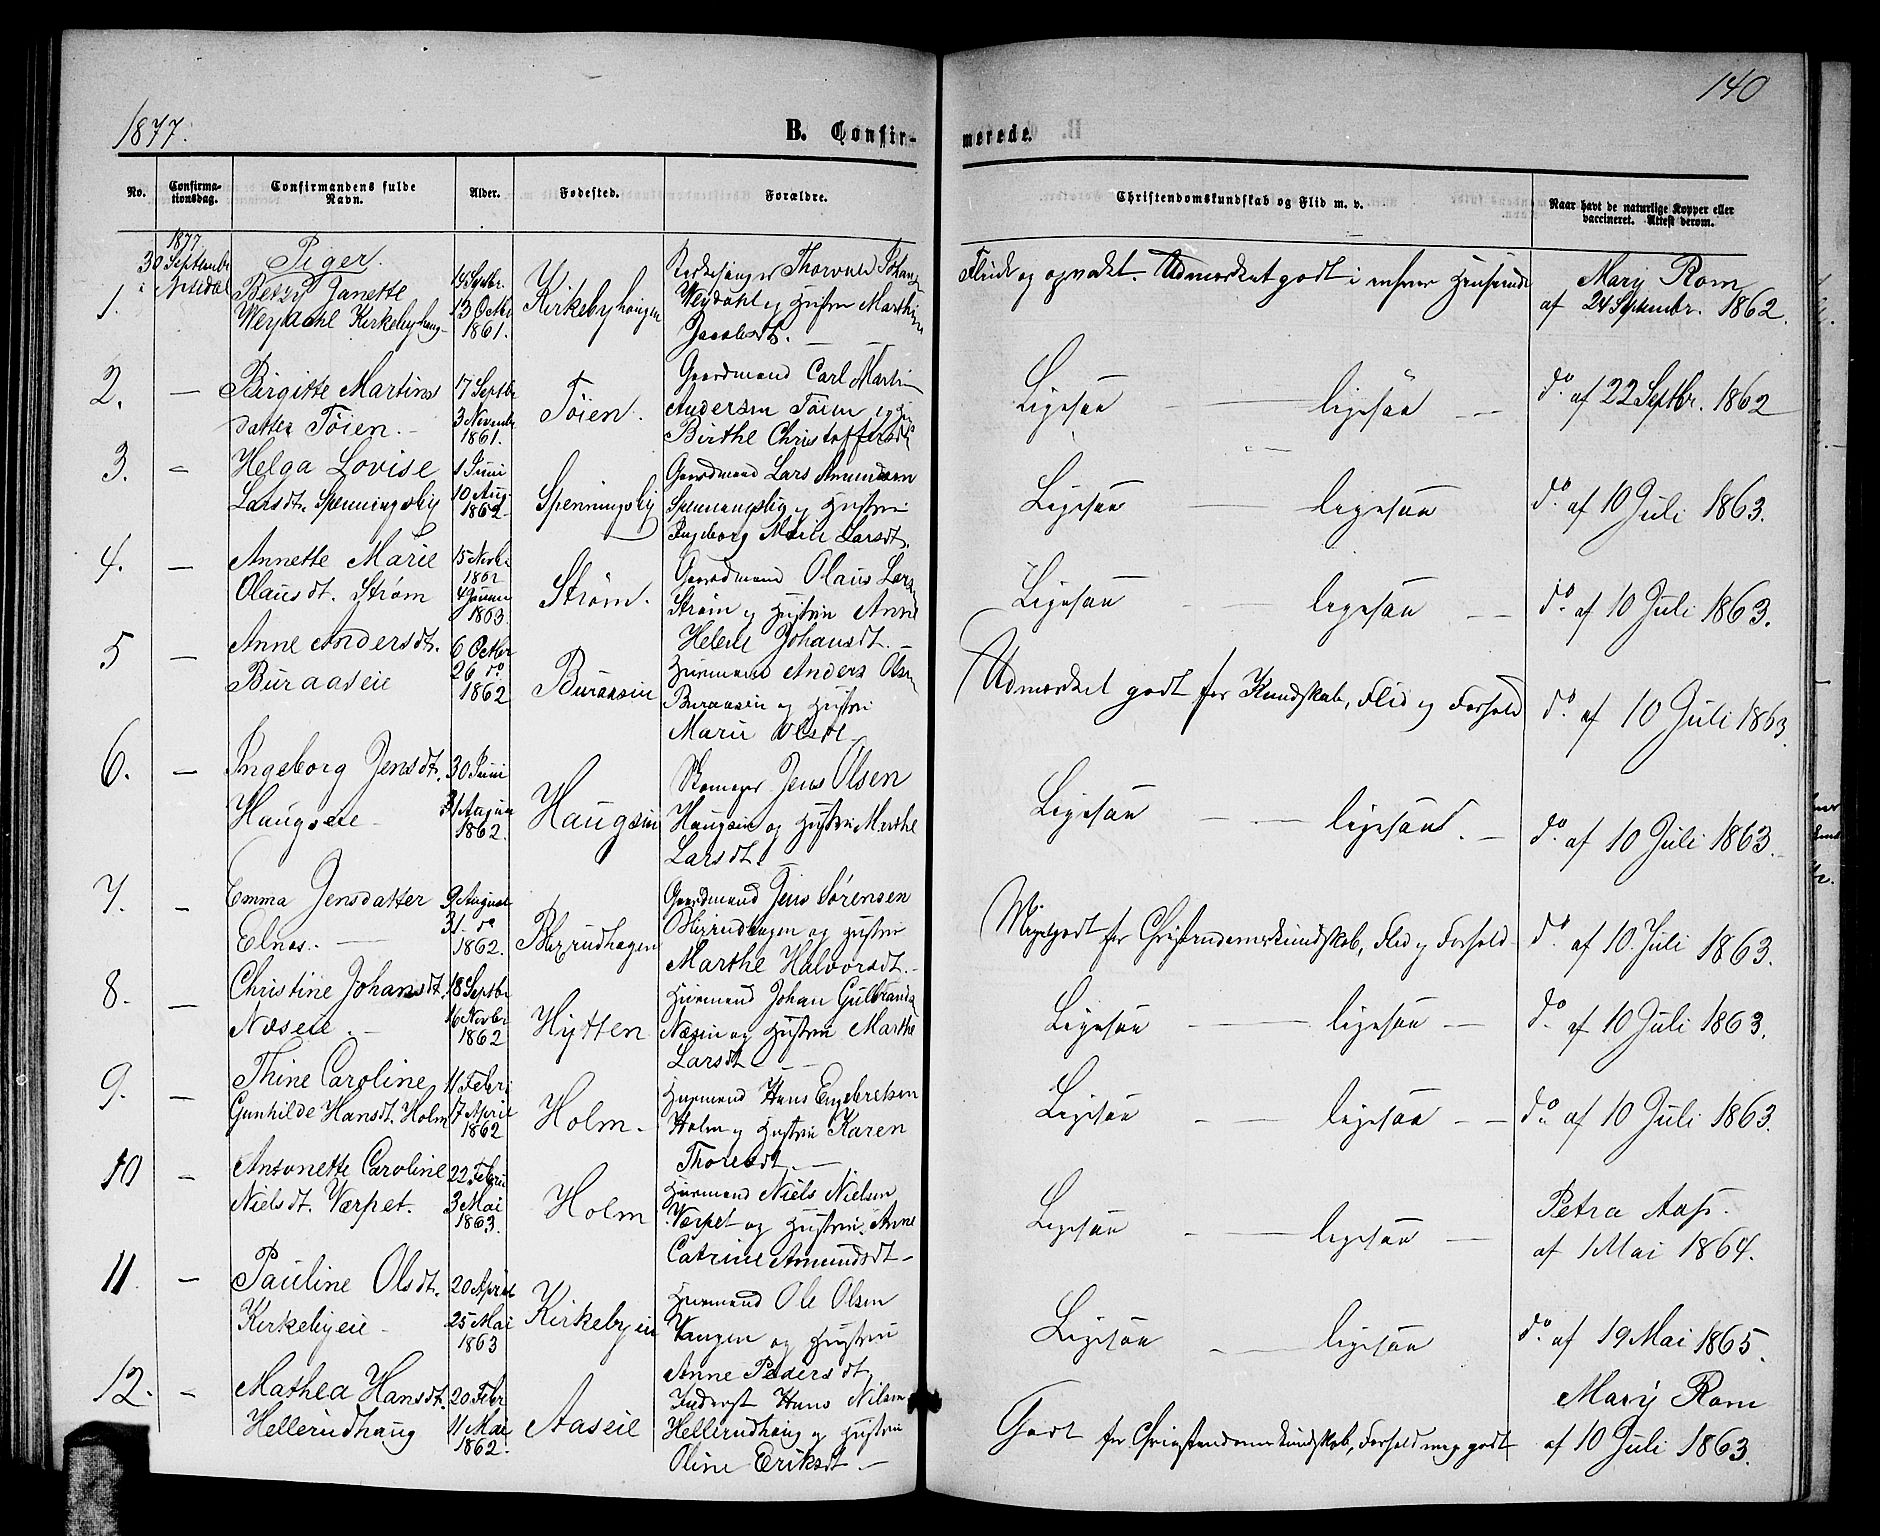 140
1877.
B. Confir-
merede.
No.
Confirma-
tionsdag.
Confirmandens fulde
Navn.
Alder.
Fødested.
Forældre.
Christendomskundskab og Flid m. v.
Naar havt de naturlige Kopper eller
vaccineret. Attest derom.
1877
30 Septembr
Piger.
1. Betzy Janette
Weydahl Kirkebyhaug
14 Septbr.
13 Octbr
1861.
Kirkebyhaugen
Kirkesanger Thorvald Johan
Weydahl og Hustru Marthine
Jacobsdt.
Flink og opvakt. Udmærket godt i enhver Henseende
Mary Rom
af 24 Septembr. 1862.
2. — Birgitte Martins
datter Töien.
17 Septbr
3 Novembr
1861.
Töien.
Gaardmand Carl Martin
Andersen Töien og Hu
Birthe Christoffersdt
Ligesaa — ligesaa —
do. af 22 Septbr. 1862
3. - Helga Lovise
Larsdt. Spenningsby
1 Juni
10 Aug
1862
Spenningsby
Gaardmand Lars Amundsen
Spenningsby og Hustru
Ingeborg Marie Larsdt.
Ligesaa — ligesaa
do. af 10 Juli 1863.
4. — Annette Marie
Olausdt. Strøm
15 Novbr
1862
4 Januar
1863.
Strøm.
Gaardmand Olaus Lars
Strøm og Hustru Anne
Helene Johansdt.
Ligesaa — ligesaa —
do. af 10 Juli 1863.
5 — Anne Andersdt.
Buraaseie
6 Octbr
26 do
1862
Buraaseie
Huusmand Anders Olsen
Buraaseie og Hustru
Marie Olsdt.
Udmærket godt for Kundskab, Flid og Forhold
do. af 10 Juli 1863.
6. — Ingeborg Jensdt.
Haugseie
30 Juni
31 August
1862.
Haugseie
Skomager Jens Olsen
Haugseie og Hustru Marthe
Larsdt.
Ligesaa — ligesaa. —
do. af 10 Juli 1863.
7. - Emma Jensdatter
Elnæs. —
9 August
31. do
1862.
Gaardmand Jens Sørensen
og Hustru
Marthe Halvorsdt.
Megetgodt for Christendomskundskab, Flid og Forhold
do. af 10. Juli 1863.
8. — Christine Johansdt.
Næseie. —
18 Septbr
16 Novbr
1862
Hytten
Huusmand Johan Gulbrands
Næseie og Hustru Marthe
Larsdt. —
Ligesaa — ligesaa —
do. af 10 Juli 1863.
9. — Thine Caroline
Gunhilde Hansdt. Holm
11 Febr
17 April
1862
Holm.
Huusmand Hans Engebretsen
Holm og Hustru Karen
Thoresdt. —
Ligesaa — ligesaa — —
do. af 10 Juli 1863.
10 - Antonette Caroline
Nielsdt. Værpet.
22 Febr
3 Mai
1863.
Holm
Huusmand Niels Nielsen
Værpet og Hustru Anne
Catrine Amundsdt —
Ligesaa — ligesaa —
Petra Aas.
af 1 Mai 1864.
11. — Pauline Olsdt.
Kirkebyeie
20 April
25 Mai
1863
Kirkebyeie
Huusmand Ole Olsen
Vangen og Hustru
Anne Pedersdt
Ligesaa — ligesaa
do. af 19 Mai 1865.
12. - Mathea Hansdt.
Hellerudhaug
20 Febr
11 Mai
1862.
Aaseie
Inderst Hans Nilsen
Hellerudhaug og Hustru
Oline Eriksdt —
Godt for Christendomskundskab, Forhold meg godt
Mary Rom
af 10 Juli 1863.